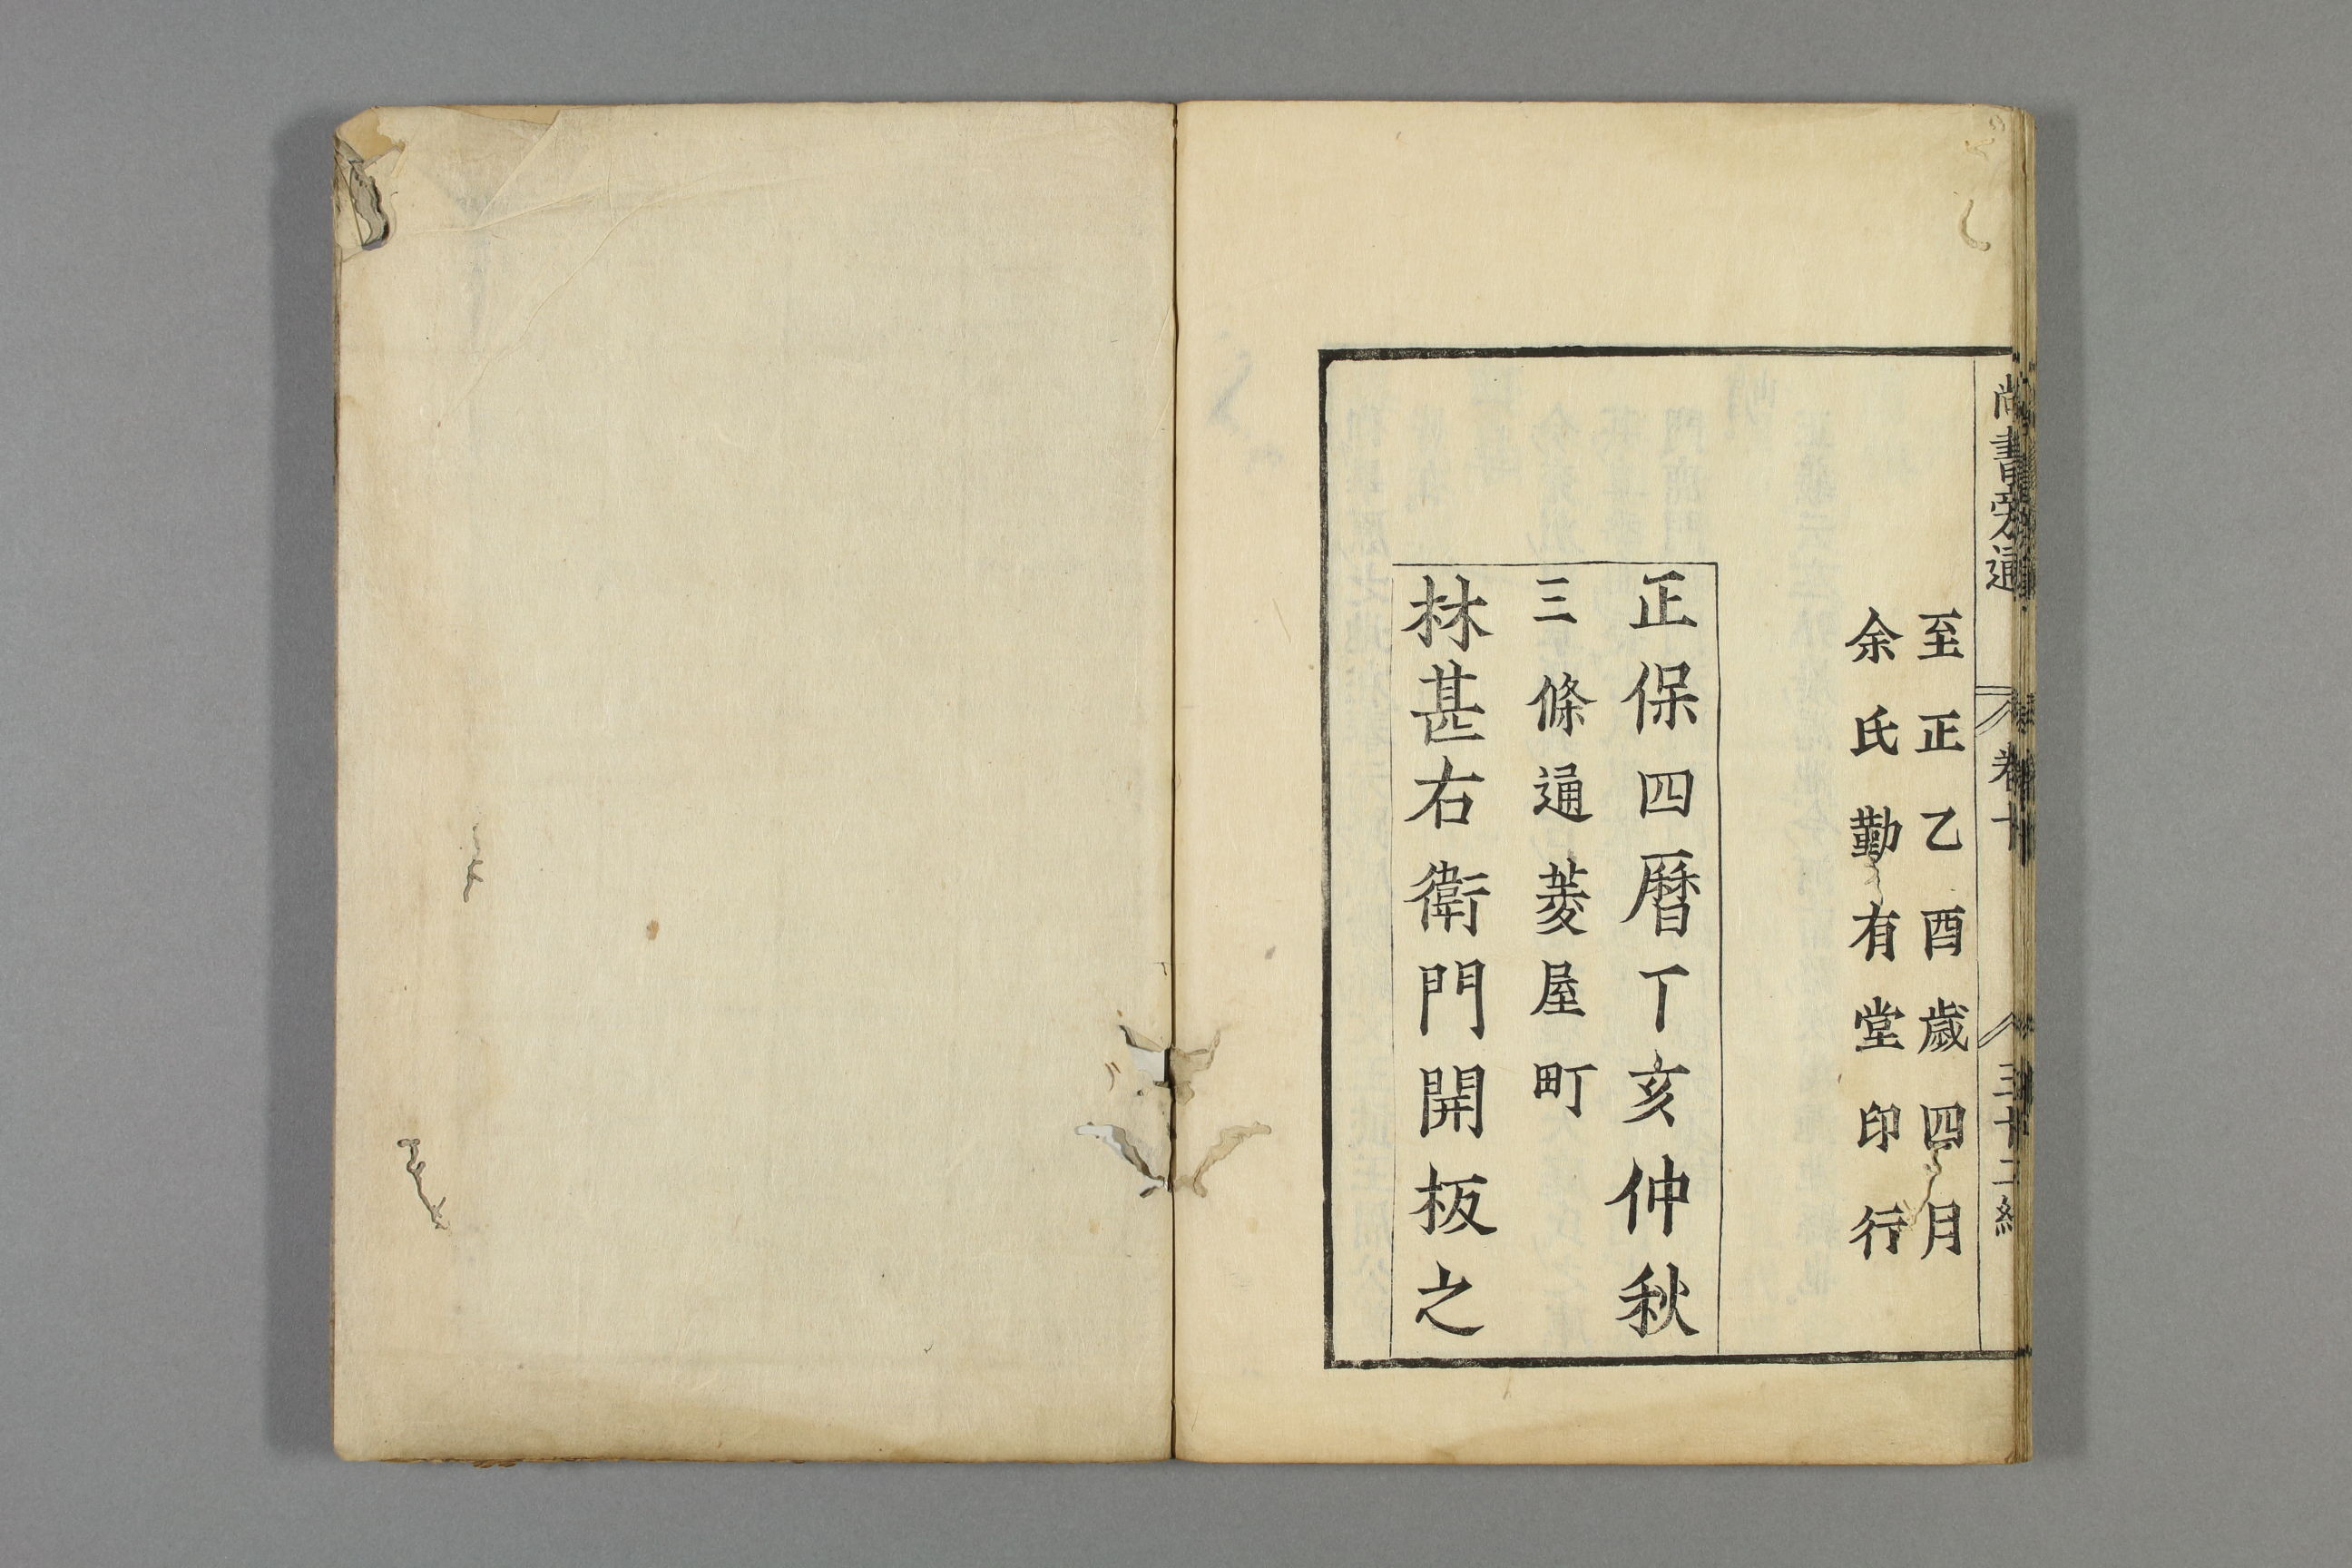 尚書旁通 卷十 三十二終
至正乙酉歲四月
余氏勤有堂印行
正保四曆丁亥仲秋
三條通菱屋町
林甚右衛門開板之